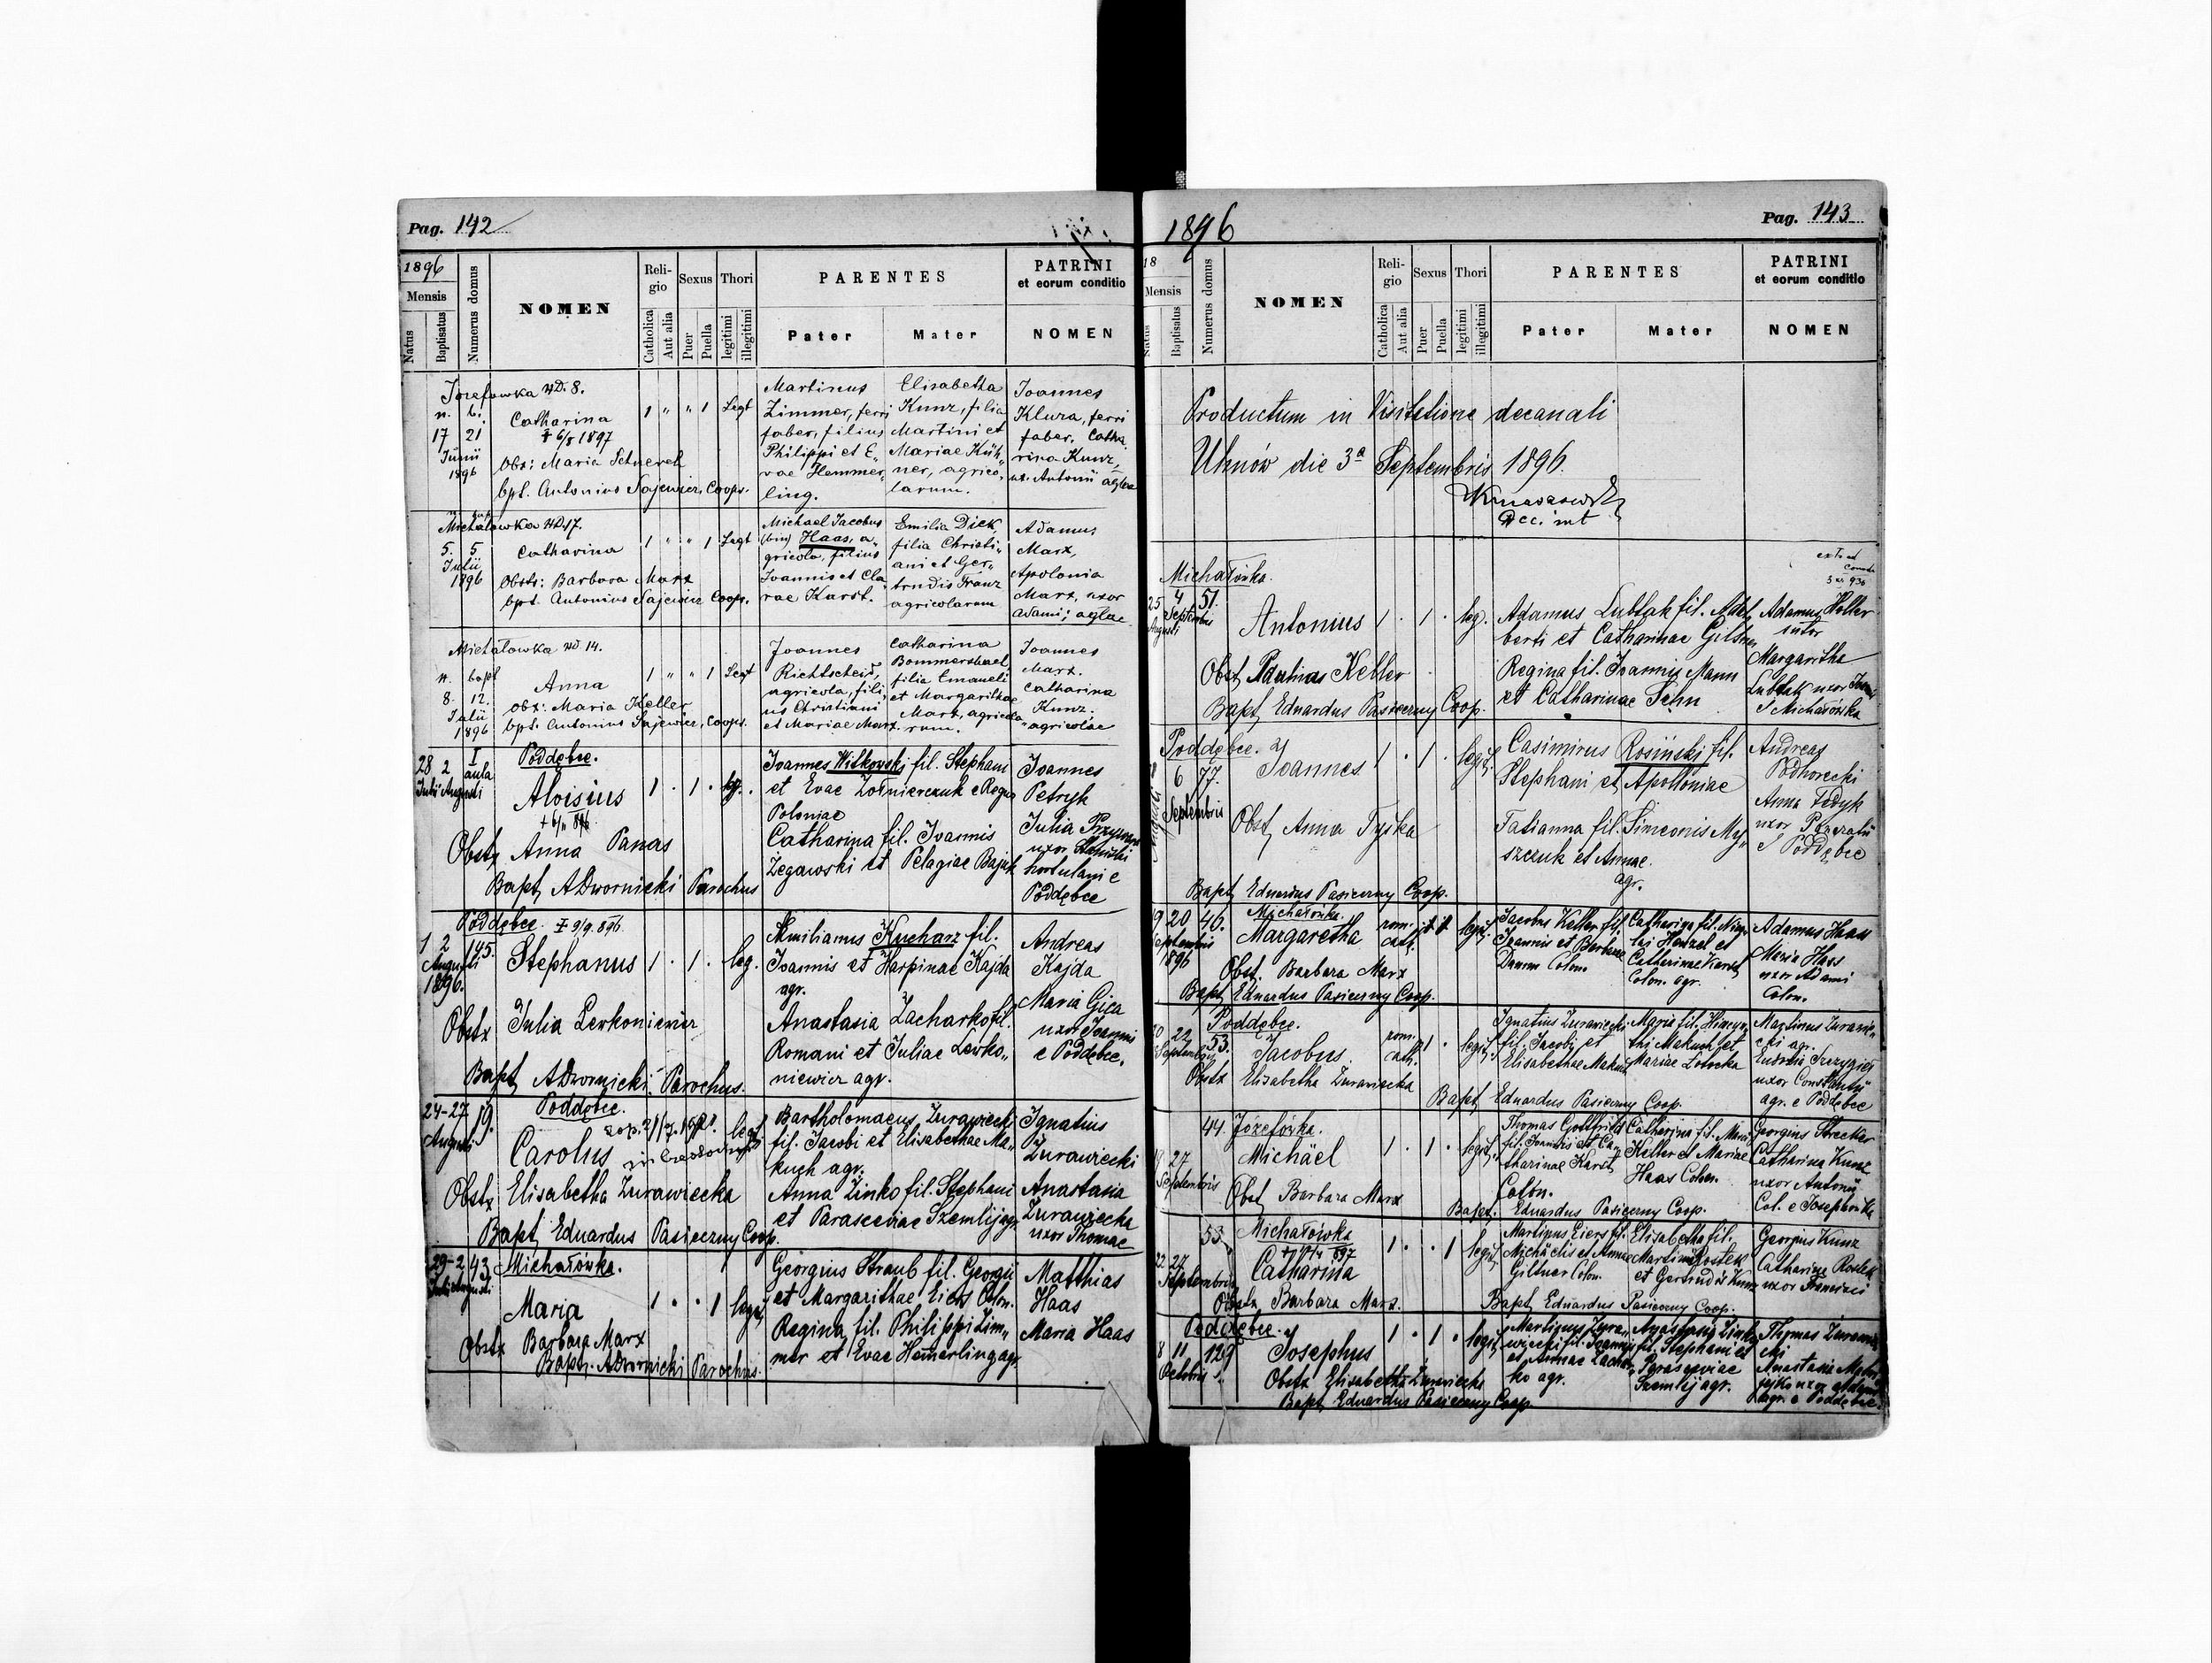 Pag. 142
1896
Mensis
Natus
Baptisatus
Numerus domus
NOMEN
Religio
Catholica
Aut alia
Sexus
Puer
Puella
Thori
legitimi
illegitimi
PARENTES
Pater
Mater
PATRINI
et eorum conditio
NOMEN
Józefowka ND. 8.
n. b.
17 21
Junii
1896
Catharina
1 " " 1 Legt
Obs: Maria Schnerch
bpt. Antonius Sajewicz, Coops.
Martinus
Zimmer, ferri
faber, filius
Philippi et E„
vae Hemmer„
ling.
Elisabetha
Kunz, filia
Martini et
Mariae Küh„
ner, agrico„
larum.
Joannes
Klura, ferri
faber, Catha
rina Kunz,
ux. Antonii
Michałowka ND 17.
5. 5
Julii
1896
Catharina
1 " " 1 Legt
Obsts: Barbara Marx
bpt. Antonius Sajewicz Coops.
Michael Jacobus
(bin) Haas, a„
gricola, filius
Joannis et Cla
rae Karst.
Emilia Dick,
filia Christi„
ani et Ger„
trudis Franz
agricolarum
Adamus
Marx,
Apolonia
Marx, uxor
Adami;
Michałowka ND 14.
n. bapt
8. 12.
Julii
1896
Anna
1 " " 1 Legt
obs: Maria Keller
bpt. Antonius Sajewicz, coops.
Joannes
Richtscheid,
agricola, fili„
us Christiani
et Mariae Marx.
Catharina
Bommersbael,
filia Emaneli
et Margarithae
Marx, agricola„
rum.
Joannes
Marx.
Catharina
Kunz.
agricolae
Poddębce.
28 2 I
aula
Julii Augusti
Aloisius
1 . 1 . leg.
Obstx Anna Panas
Bapt. ADwornicki Parochus
Joannes Witkowski fil. Stephani
et Evae Żołnierczuk e Regno
Poloniae
Catharina fil. Joannis
Żegawski et Pelagiae Bajuk
Joannes
Petryk
Julia
uxor
hortulani e
Poddębce
Poddębce. 9/9. 896.
1 2 145.
Augusti
1896.
Stephanus
1 . 1 . leg.
Obstx Julia Lewkoniewicz
Bapt. ADwornicki Parochus.
Aemilianus Kucharz fil.
Joannis et Harpinae Kajda
agr.
Anastasia Zacharko fil.
Romani et Juliae Lewko„
niewicz agr.
Andreas
Kajda
Maria Gica
uxor Joannis
e Poddębce.
Poddębce.
24-27 19.
Augusti
Carolus
Obstx Elisabetha Żurawiecka
Bapt. Eduardus Pasieczny Coop.
Bartholomaeus Żurawiecki
fil. Jacobi et Elisabethae Ma„
kuch agr.
Anna Zinko fil. Stephani
et Parasceviae Szemlij agr.
Ignatius
Żurawiecki
Anastasia
Żurawiecka
uxor Thomae
29-2 43 Michałówka.
Julii Augusti
Maria
1 . . 1 legit.
Obstx Barbara Marx
Bapt. ADwornicki Parochus.
Georgius Straub fil. Georgii
et Margarithae Eiers Colon.
Regina fil. Philippi Zim„
mer et Evae Hemerling agr.
Matthias
Haas
Maria Haas
1896
Pag. 143
18
Mensis
Natus
Baptisatus
Numerus domus
NOMEN
Religio
Catholica
Aut alia
Sexus
Puer
Puella
Thori
legitimi
illegitimi
PARENTES
Pater
Mater
PATRINI
et eorum conditio
NOMEN
Productum in Visitatione decanali
Uhnów die 3ª Septembris 1896.
Dec. int
Michałówka.
25 4 51.
Augusti Septembris
Antonius
1 . 1 . leg.
Obst. Paulina Keller
Bapt. Eduardus Pasieczny Coop.
Adamus Lubtak fil. Adal„
berti et Catharinae Giltner
Regina fil. Joannis Mann
et Catharinae Sehn
Adamus Holler
sutor
Margaritha
Lubtak uxor
e Michałówka
Poddębce.
6 77.
Septembris
Joannes
1 . 1 . legit.
Obst. Anna Tyśka
Bapt. Eduardus Pasieczny Coop.
Casimirus Rosiński fil.
Stephani et Apolloniae
Tatianna fil. Simeonis My„
szczuk et Annae.
agr.
Andreas
Podhorecki
Anna Fedyk
uxor
e Poddębce
Michałówka.
9 20 46.
Septembris
1896
Margaretha
rom. cath.
legit.
Obst. Barbara Marx
Bapt. Eduardus Pasieczny Coop.
Jacobus Keller fil.
Joannis et Barbarae
Damm Colon.
Catharina fil.
Henzel et
Catherinae Karst
Colon. agr.
Adamus Haas
Maria Haas
uxor Adami
Colon.
Poddębce.
20 22 53.
Septembris
Jacobus.
rom. cath.
1 . legit.
Obstx Elisabetha Żurawiecka
Bapt. Eduardus Pasieczny Coop.
Ignatius Żurawiecki
fil. Jacobi et
Elisabethae Makuch
Maria fil.
Makuch et
Mariae
Martinus Żurawie„
cki agr.
uxor Constantii
agr. e Poddębce
44. Józefówka.
27
Septembris
Michäel
1 . 1 . legit.
Obst. Barbara Marx
Bapt. Eduardus Pasieczny Coop.
Thomas Gottfried
fil. Joannis et Ca„
tharinae Karst
Colon.
Catharina fil.
Keller et Mariae
Haas Colon.
Georgius
Catharina Kunz
uxor Antonii
Col. e Josephówka
53. Michałówka
22 27
Septembris
Catharina
1 . . 1 legit.
Obstx Barbara Marx.
Bapt. Eduardus Pasieczny Coop.
Martinus Eiers fil.
Michäelis et Annae
Giltner Colon.
Elisabetha fil.
Martini Rostek
et Gertrudis Kunz
Georgius Kunz
Catharina Rostek
uxor Francisci
Poddębce.
8 11 129
Octobris
Josephus
1 . 1 . legit.
Obstx Elisabetha Żurawiecka
Bapt. Eduardus Pasieczny Coop.
Martinus Żura„
wiecki fil. Joannis
et Annae Zachar„
ko agr.
Anastasia Zinko
fil. Stephani et
Parasceviae
Szemlij agr.
Thomas Żurawie„
cki
Anastasia
uxor
agr. e Poddębce.